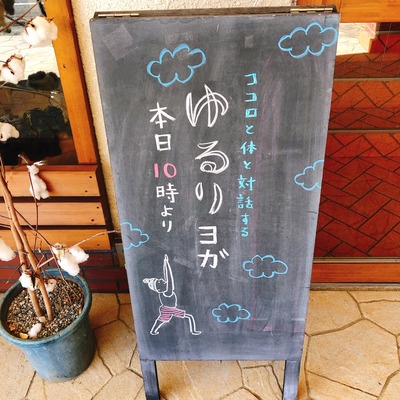 ココロと体と対話する
ゆるりヨガ
本日10時より